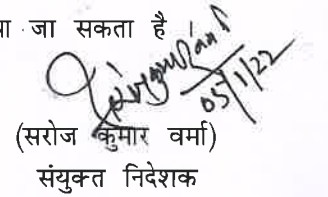 जा सकता है
05/1/22
(सरोज कुमार वर्मा)
संयुक्त निदेशक